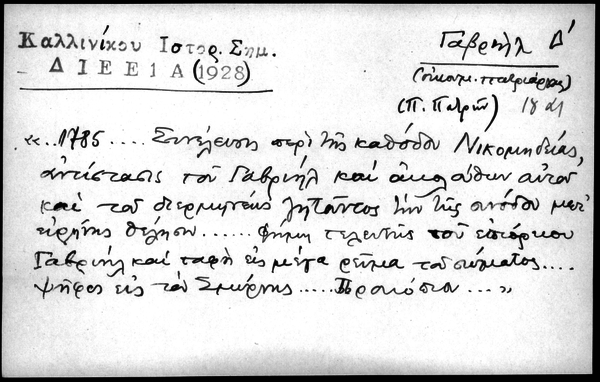 Καλλινίκου Ιστορ. Σημ.
ΔΙΕΕ1Α (1928)
Γαβριήλ Δ'
(οἰκουμ. πατριάρχης)
(Π. Πατρῶν) 18
«..1785.... Συνέλευσις περὶ τῆς καθόδου Νικομηδείας,
ἀντίστασις τοῦ Γαβριήλ καὶ ἀκολούθων αὐτοῦ
καὶ τοῦ διερμηνέως ζητοῦντος τὴν τῆς συνόδου μετ'
εἰρήνης θέλησιν...... φήμη τελευτῆς τοῦ ἐπιόρκου
Γαβριήλ καὶ ταφὴ εἰς μέγα ρεῦμα τοῦ σώματος....
ψῆφος εἰς τὸν Σμύρνης..... Προκόπιον...»